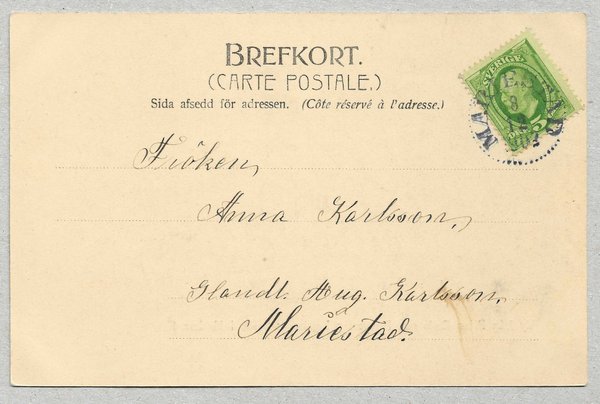 BREFKORT.
(CARTE POSTALE.)
Sida afsedd för adressen. (Côte réservé à l'adresse.)
SVERIGE
MARIESTAD
Fröken,
Anna Karlsson,
Handl. Aug. Karlsson,
Mariestad.